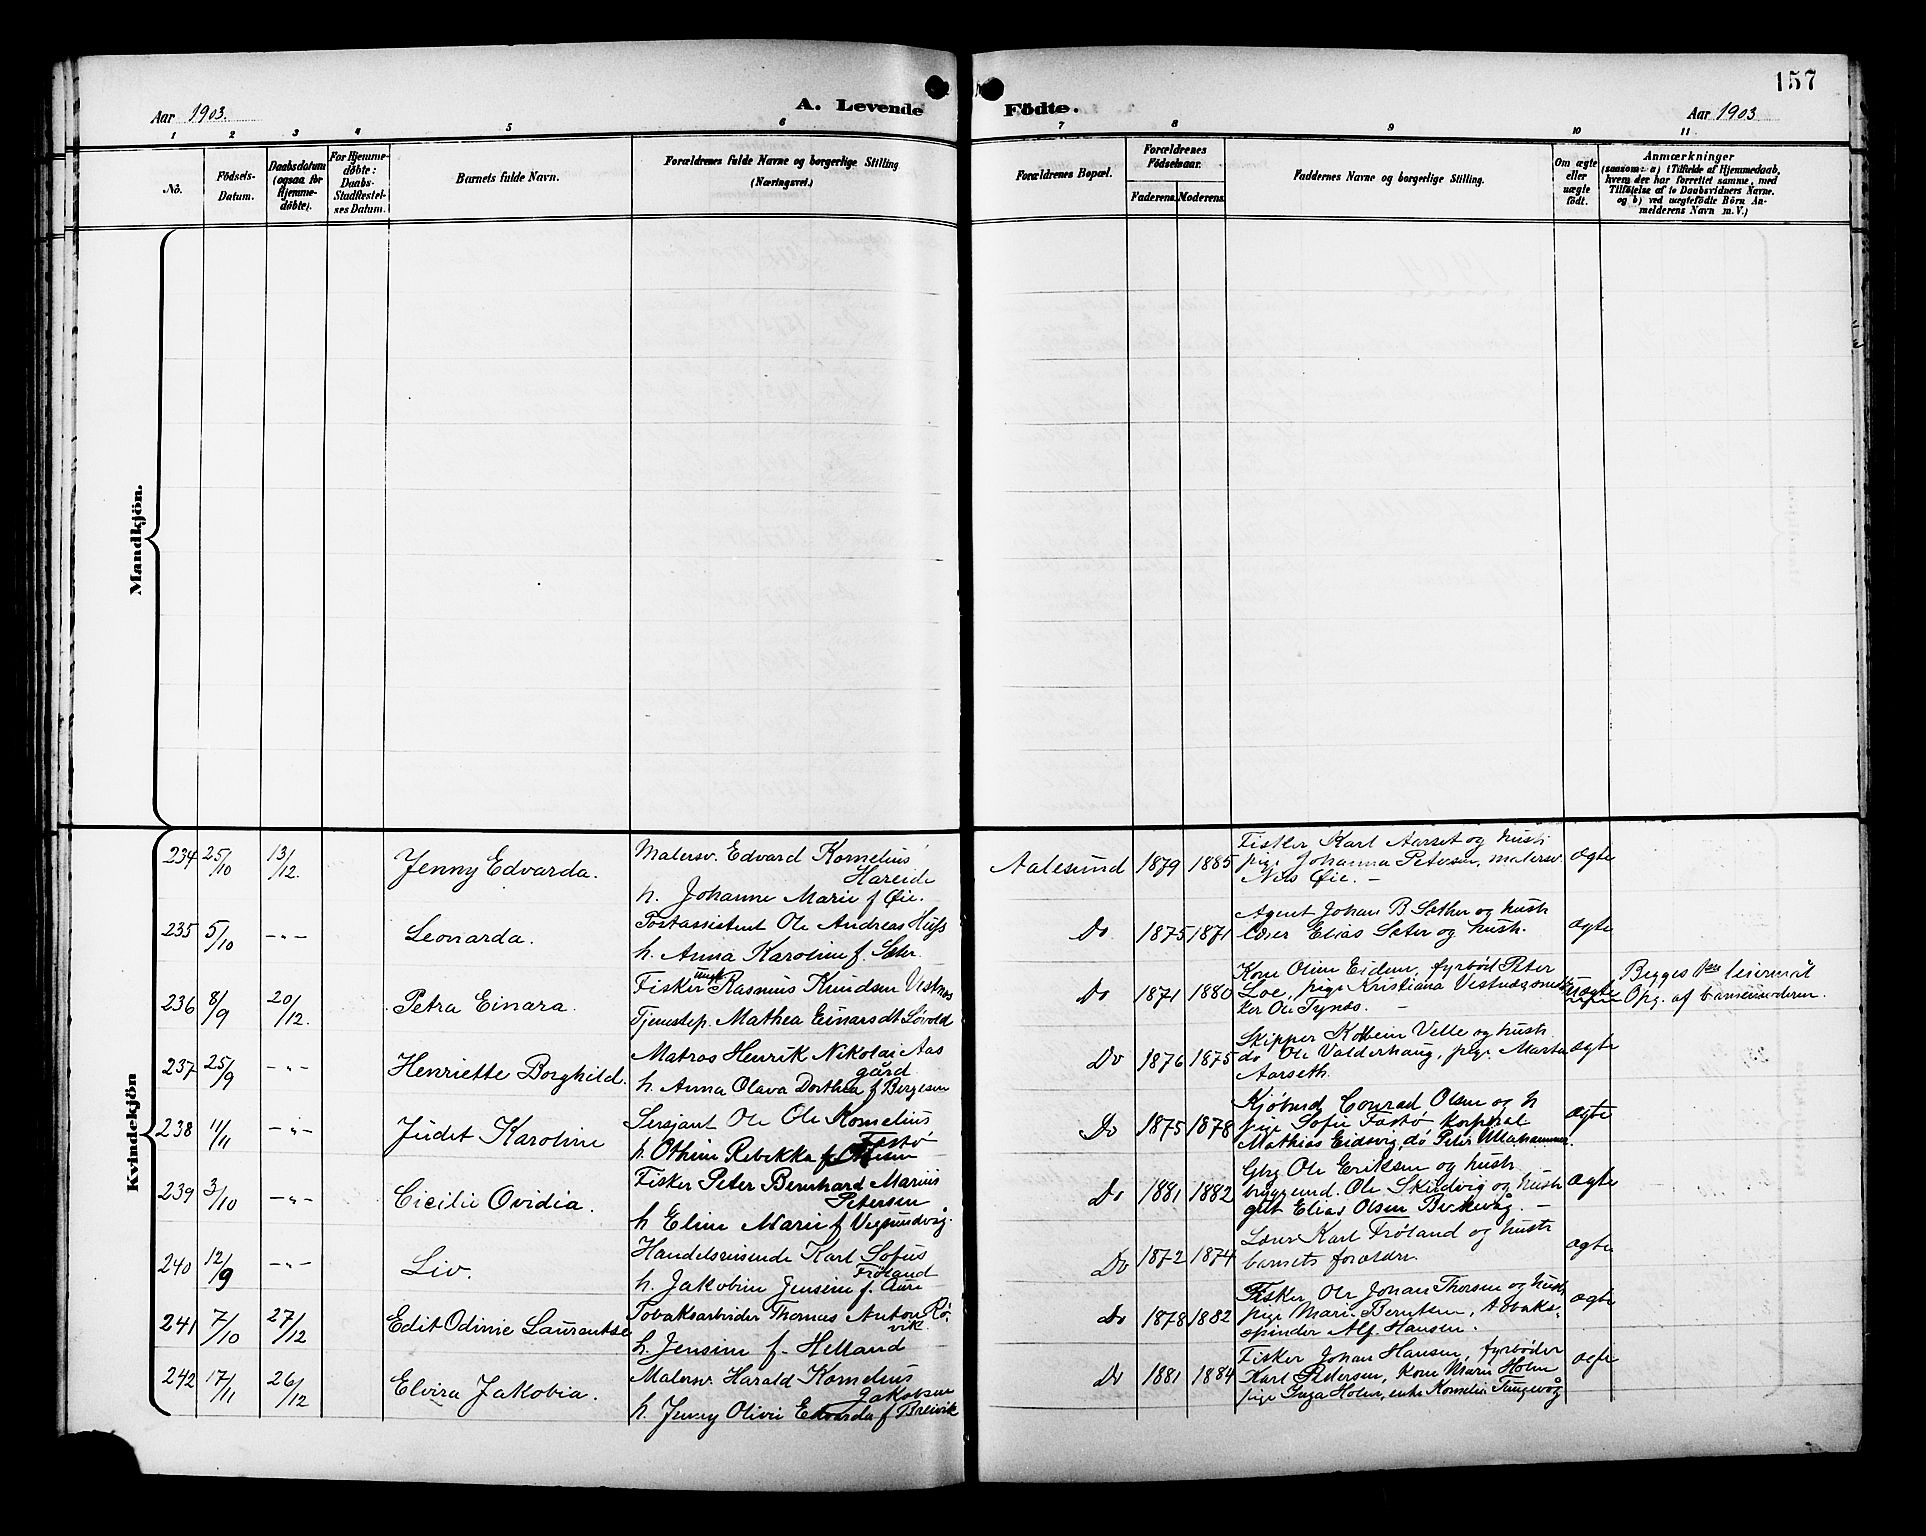 157
Aar 1903.
A. Levende Födte.
Aar 1903
1 2 3 4 5 6 7 8 9 10 11
No.
Födsels-
Datum.
Daabsdatum
(ogsaa for
Hjemme-
döbte).
For Hjemme-
döbte:
Daabs-
Stadfæstel-
ses Datum.
Barnets fulde Navn.
Forældrenes fulde Navne og borgerlige Stilling
(Næringsvei.)
Forældrenes Bopæl.
Forældrenes
Födselsaar.
Faderens. Moderens.
Faddernes Navne og borgerlige Stilling.
Om ægte
eller
uægte
födt.
Anmærkninger
(saasom: a) i Tilfælde af Hjemmedaab,
hvem der har forrettet samme, med
Tilföielse af to Daabsvidners Navne,
og b) ved uægtefödte Börn An-
melderens Navn m. V.)
Mandkjön.
Kvindekjön
234 25/10 13/12. Jenny Edvarda.
Malersv. Edvard Kornelius
Hareide
h. Johanne Marie f Øie.
Aalesund 1879 1885
Fisker Karl Aarset og hustr
pige Johanna Petersen, malersv.
Nils Øie. –
ægte
235 5/10 –"– Leonarda.
Postassistent Ole Andreas Hjfs
h. Anna Karoline f. Sæter
Do. 1875 1871
Agent Johan B Sæther og hustr
Lærer Elias Sæter og hustr.
ægte
236 8/9 20/12. Petra Einara.
Fisker ungk Rasmus Knudsen Vestnes
Tjenestep. Mathea Einarsdt Løvold
Do 1871 1880
Kone Oline Eidem, fyrbød Peter
Loe, pige Kristiana Vestnes,
Ole Tynæs. –
uægte
Begges 1ste leiermål
Opg. af barnemoderen.
237 25/9 –"– Henriette Borghild.
Matros Henrik Nikolai Aas
gård
h. Anna Olava Dorthea f Bergesen
Do 1876 1875
Skipper Kolbein Velle og hustr
do Ole Valderhaug, pige Marta
Aarseth.
ægte
238 11/11 –"– Judit Karoline
Sersjant Ole Ole Kornelius
Fastø
h. Othine Rebekka f Olsen
Do 1875 1878
Kjøbmd Conrad Olsen og h
pige Sofie Fastø korporal
Mathias Eidsvig, do Peter Ullahammer.
ægte
239 3/10 –"– Cicilie Ovidia.
Fisker Peter Bernhard Marius
Petersen
h Eline Marie f Vegsundvåg.
Do 1881 1882
Gbg Ole Eriksen og hustr
bryggemd. Ole Skudvig og hustr
gut Elias Olsen Birkevåg. –
ægte
240 12/9 –"– Liv.
Handelsreisende Karl Sofus
Frøland
h. Jakobine Jensine f. Aure
Do 1872 1874
Lærer Karl Frøland og hustr
barnets forældre.
ægte
241 7/10 27/12 Edit Odinie Laurentse
Tobaksarbeider Thomas Anton Rø-
vik.
h. Jensine f. Helland
Do 1878 1882
Fisker Ole Johan Thorsen og hustr,
pige Marie Berntsen, tobaks-
spinder Alf. Hansen.
ægte
242 17/11 26/12 Elvira Jakobia.
Malersv. Harald Kornelius
Jakobsen
h. Jenny Olivie Edvarda f Breivik
Do 1881 1884
Fisker Johan Hansen, fyrbøder
Karl Pedersen, kone Marie Holm
pige Inga Holm, enke Kornelia Tangevåg
ægte